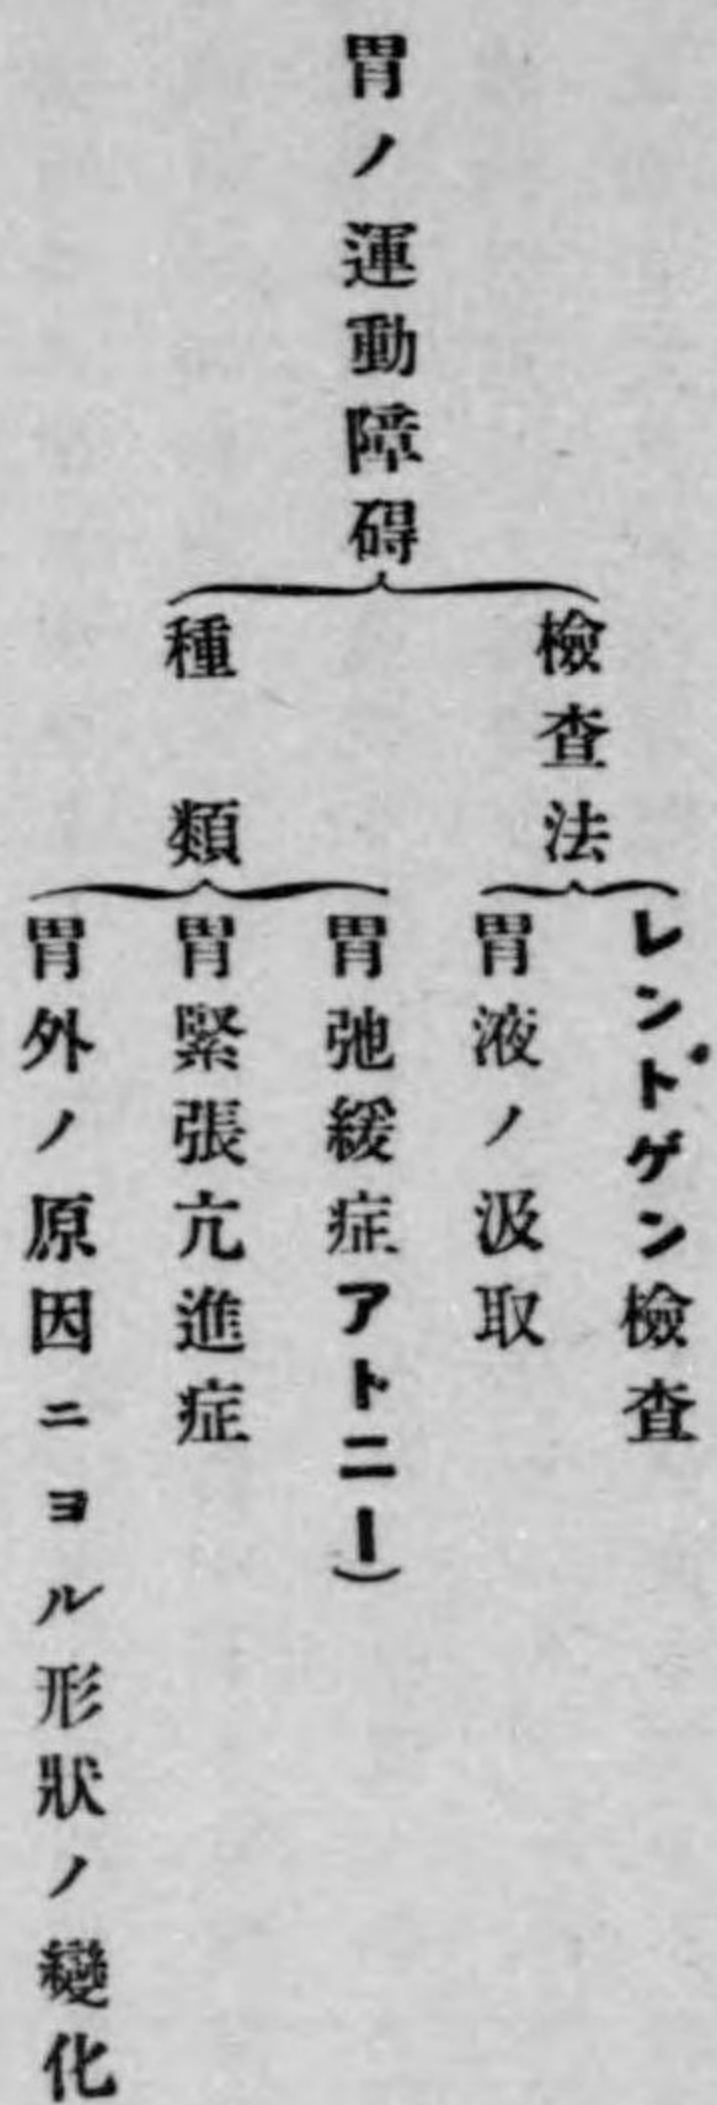 胃ノ運動障碍
檢査法
レントゲン檢査
胃液ノ汲取
種類
胃弛緩症アトニー)
胃緊張亢進症
胃外ノ原因ニヨル形狀ノ變化